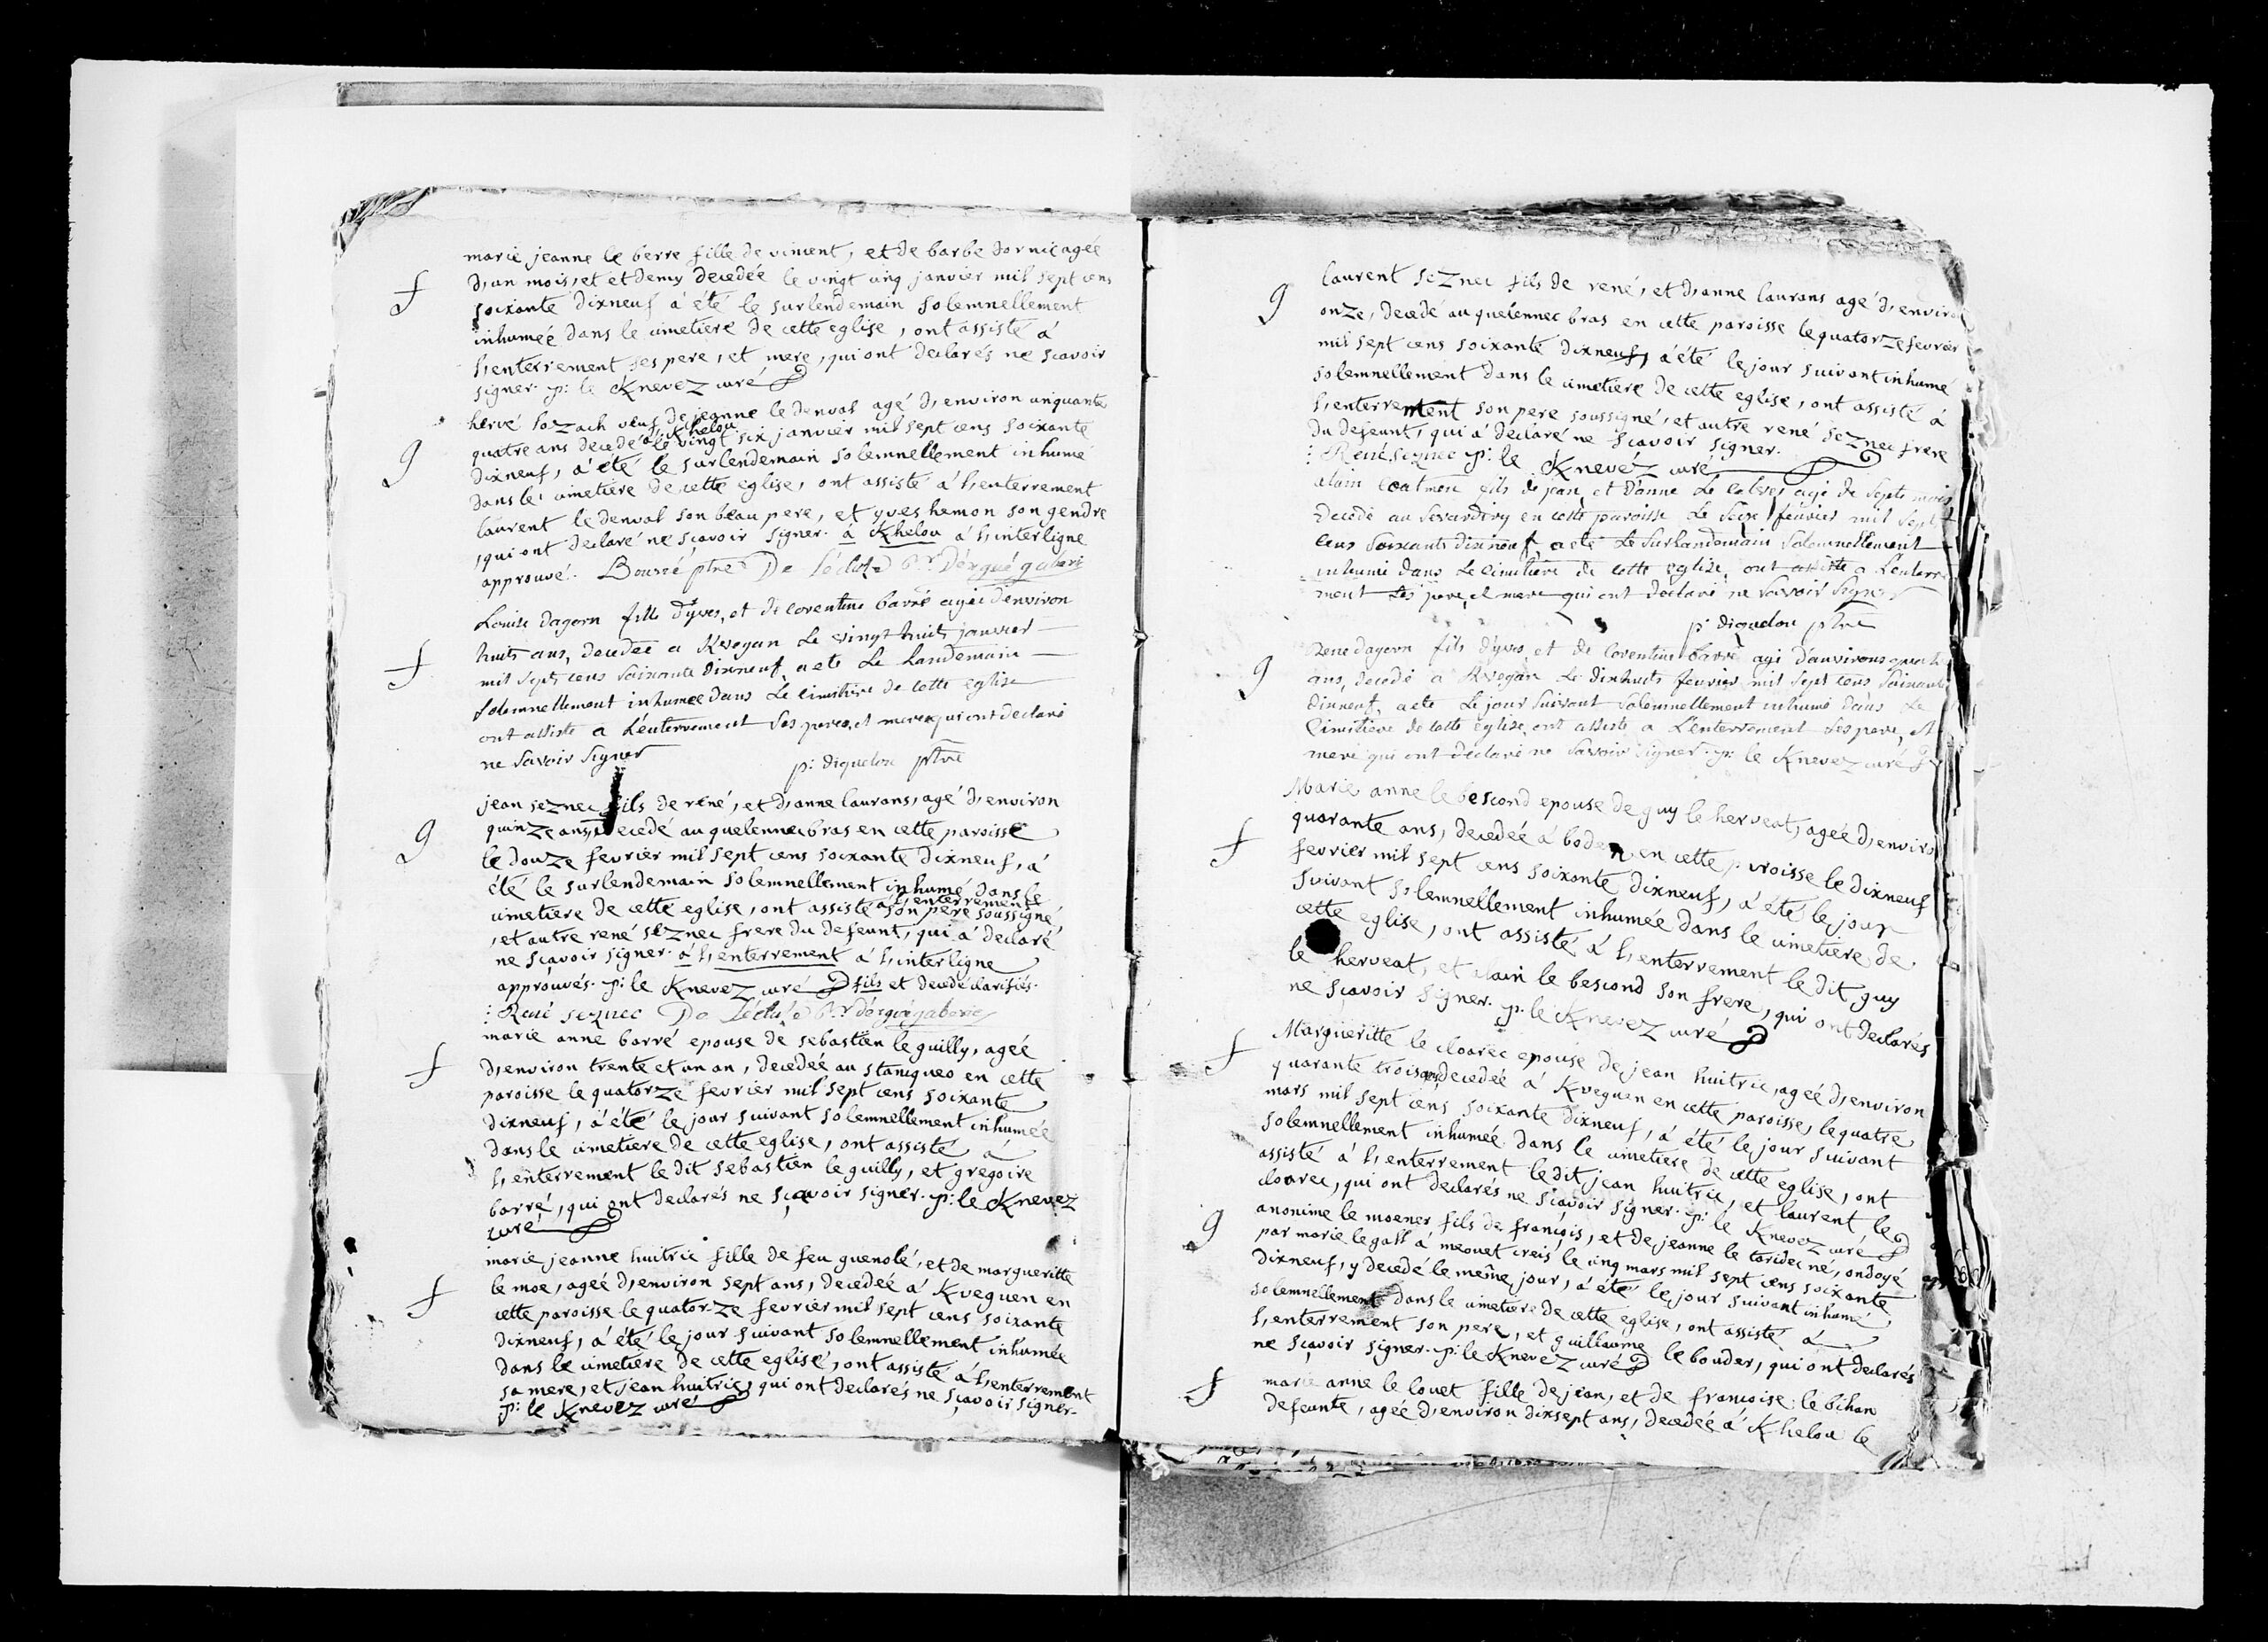 marie jeanne le berre fille de vincent, et de barbe dornic ageé
f
d,un mois, et et demy decedeé le vingt cinq janvier mil sept cens
soixante dixneuf á été le surlendemain solemnellement
inhumeé dans le cimetiere de cette eglise, ont assisté á
l,enterrement ses pere, et mere, qui ont declarés ne scavoir
signer. p: le Knevez curé
hervé lozach veuf de jeanne le denval agé d,environ cinquante
á Khelou
g
quatre ans decedé le vingt six janvier mil sept cens soixante
dixneuf, á été le surlendemain solemnellement inhumé
dans le cimetiere de cette eglise, ont assisté á l,enterrement
laurent le denval son beau pere, et yves hemon son gendre
, qui ont declaré ne scavoir signer. á Khelou á l,interligne
approuvé. Bourré ptre De Lécluze Rr Dérgué gaberic
Louise dagorn fille d'yves, et de corentine barré ageé d'environ
f
huits ans, decedeé a Kveyan Le vingt huits janvier
mil septs cens soixante dixneuf, a eté Le Landemain
solemnellement inhumeé dans Le cimitiere de cette eglise
ont assisté a L'enterrement Ses pere, et mere, qui ont declaré
ne savoir signer
p: diquelou ptre
jean seznec fils de réné, et d,anne laurans, agé d,environ
g
quinze ans, decedé au quelennec bras en cette paroisse
le douze fevrier mil sept cens soixante dixneuf, á
été le surlendemain solemnellement inhumé dans le
á l,enterrement
cimetiere de cette eglise, ont assisté son pere soussigné
, et autre rené seznec frere du defeunt, qui á declaré
ne scavoir signer. á l,enterrement á l,interligne
approuvés. p: le Knevez curé fils et decedé clarifiés.
René seznec De Lécluze Rr dérgué gaberic
marie anne barré epouse de sebastien le guilly, ageé
f
d,environ trente et un an, decedeé au staniqueo en cette
paroisse le quatorze fevrier mil sept cens soixante
dixneuf, á été le jour suivant solemnellement inhumeé
dans le cimetiere de cette eglise, ont assisté á
l,enterrement le dit sebastien le guilly, et gregoire
barré, qui ont declarés ne scavoir signer. p: le Knevez
curé
marie jeanne huitric fille de feu guenolé, et de margueritte
le moe, ageé d,environ sept ans, decedeé á Kveguen en
f
cette paroisse le quatorze fevrier mil sept cens soixante
dixneuf, á été le jour suivant solemnellement inhumeé
dans le cimetiere de cette eglise, ont assisté á l,enterrement
sa mere, et jean huitric, qui ont declarés ne scavoir signer.
p: le Knevez curé
laurent seznec fils de rené, et d,anne laurans agé d,environ
g
onze, decedé au quelennec bras en cette paroisse le quatorze fevrier
mil sept cens soixante dixneuf, á été le jour suivant inhumé
solemnellement dans le cimetiere de cette eglise, ont assisté á
l,enterrement son pere soussigné, et autre rené seznec frere
du defeunt, qui á declaré ne scavoir signer.
René seznec p: le Knevéz curé
alain coatmen fils de jean, et d'anne Le agé de septs mois
decedé au en cette paroisse Le fevrier mil septs
cens soixante dixneuf, a eté Le surlandemain solemnellement
inhumé dans Le cimitiere de cette eglise, ont assisté a L'enterre
ment Ses pere, et mere qui ont declaré ne savoir signer
p: diquelou ptre
René dagorn fils d'yves, et de corentine barré agé d'anvirons quatre
g
ans, decedé a Kveyan Le dixhuits fevrier mil sept cens soixante
dixneuf, a eté Le jour suivant solemnellement inhumé dans Le
cimitiere de cette eglise, ont assisté a L'enterrement Ses pere, et
mere qui ont declaré ne savoir signer. p: le Knevez curé
Marie anne le bescond epouse de guy le herveat, ageé d,environ
quarante ans, decedeé á boden en cette paroisse le dixneuf
f
fevrier mil sept cens soixante dixneuf, á été le jour
suivant solemnellement inhumée dans le cimetiere de
cette eglise, ont assisté á l,enterrement le dit guy
le herveat, et alain le bescond son frere, qui ont declarés
ne scavoir signer. p: le Knevez curé
f
Margueritte le cloarec epouse de jean huitric, ageé d,environ
quarante trois ans decedeé á Kveguen en cette paroisse, le quatre
mars mil sept cens soixante dixneuf, á été le jour suivant
solemnellement inhumée dans le cimetiere de cette eglise, ont
assisté á l,enterrement le dit jean huitric, et laurent le
cloarec, qui ont declarés ne scavoir signer. p: le Knevez curé
g
anonime le moener fils de françois, et de jeanne le taridec né, ondoyé
par marie le gall á meouet creis le cinq mars mil sept cens soixante
dixneuf, y decedé le même jour, á été le jour suivant inhumé
solemnellement dans le cimetiere de cette eglise, ont assisté á
l,enterrement son pere, et guillaume le bouder, qui ont declarés
ne scavoir signer. p: le Knevez curé
f
marie anne le louet fille de jean, et de françoise le bihan
defeunte, ageé d,environ dixsept ans, decedeé á Khelou le